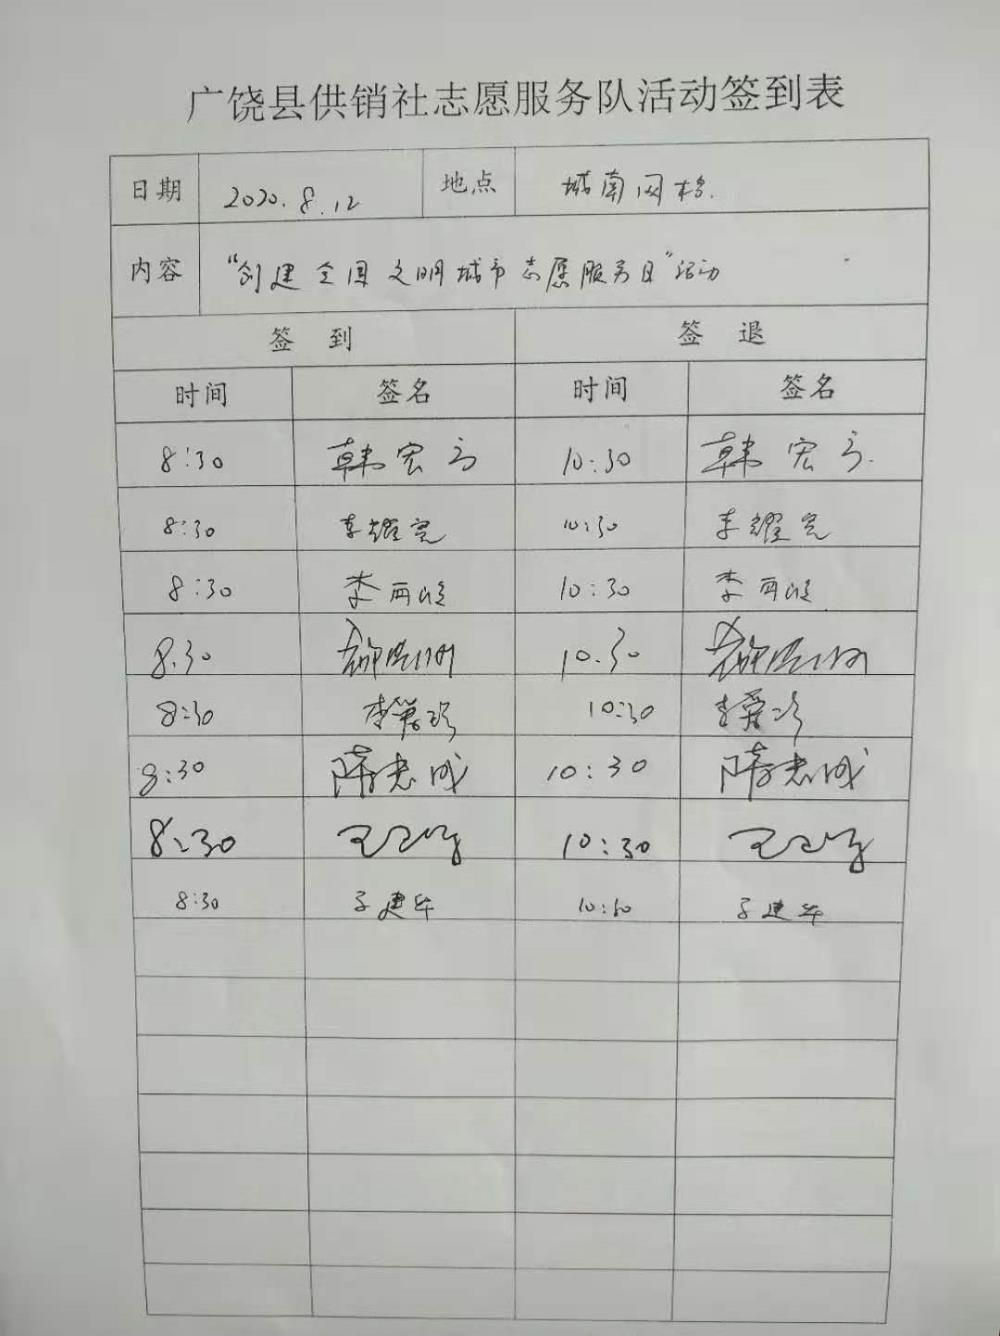 广饶县供销社志愿服务队活动签到表
日期 2020.8.12 地点 城南网格.
内容 "创建全国文明城市志愿服务日"活动
签到 签退
时间 签名 时间 签名
8:30 韩宏 10:30 韩宏
8:30 李耀亮 10:30 李耀亮
8:30 李 10:30 李
8.30 10.30
8:30 李 10:30 李
8:30 隋志成 10:30 隋志成
8:30 王 10:30 王
8:30 建华 建华